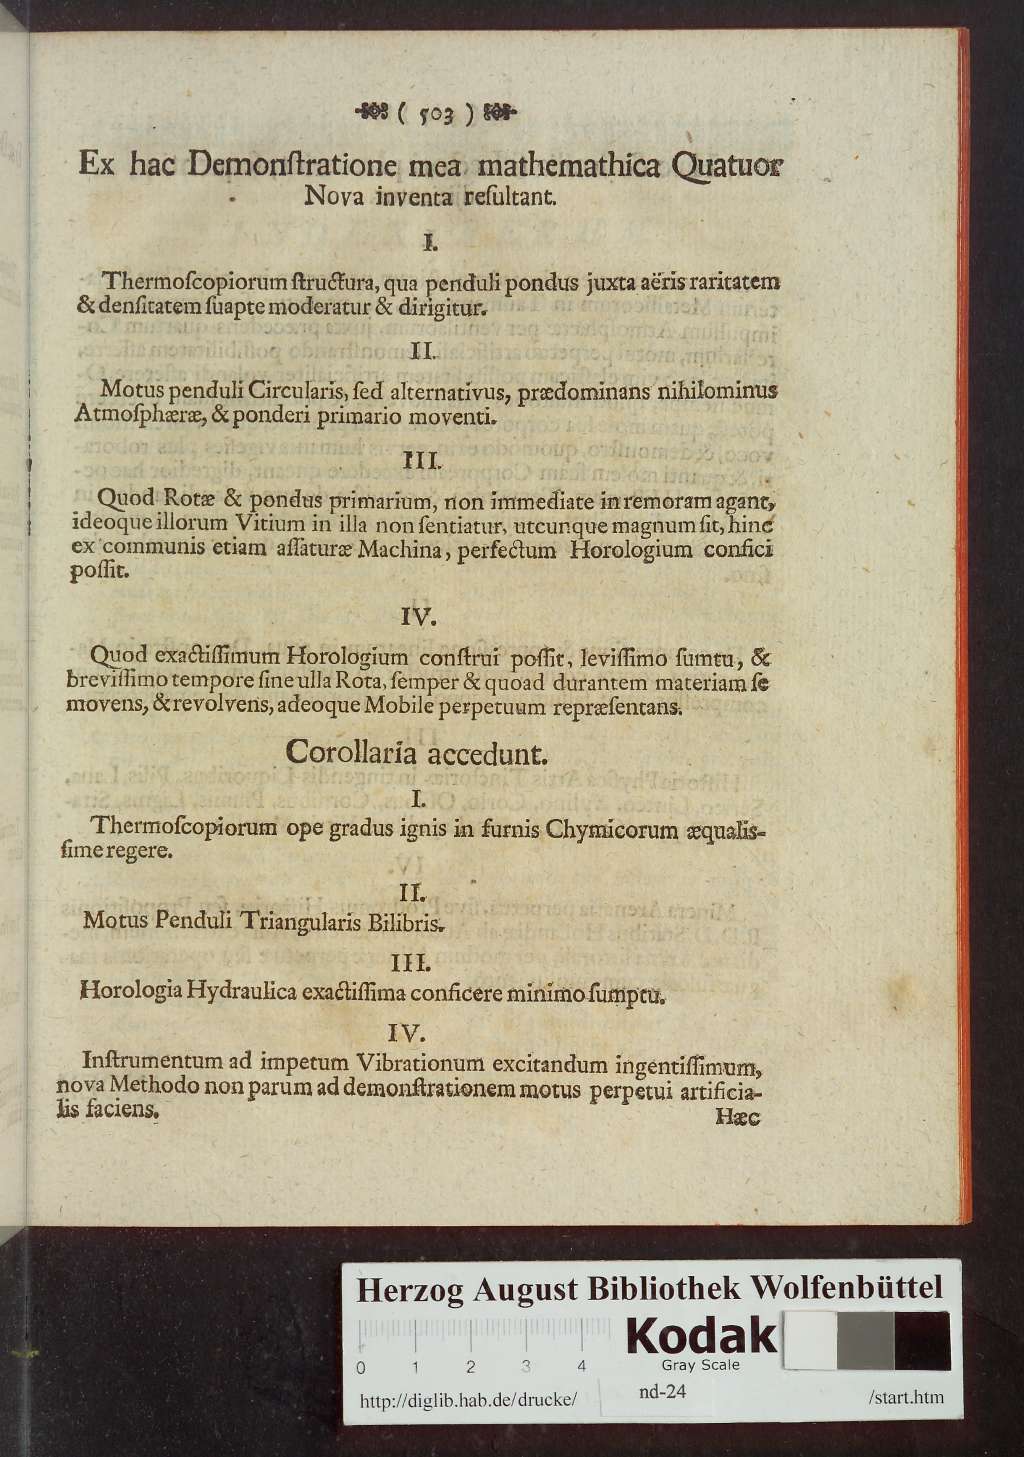 ( 503 )
Ex hac Demonſtratione mea mathemathica Quatuor
Nova inventa reſultant.
I.
Thermoſcopiorum ſtructura, qua penduli pondus juxta aëris raritatem
& denſitatem ſuapte moderatur & dirigitur.
II.
Motus penduli Circularis, ſed alternativus, prædominans nihilominus
Atmoſphæræ, & ponderi primario moventi.
III.
Quod Rotæ & pondus primarium, non immediate in remoram agant,
ideoque illorum Vitium in illa non ſentiatur, utcunque magnum ſit, hinc
ex communis etiam aſſaturæ Machina, perfectum Horologium confici
poſſit.
IV.
Quod exactiſſimum Horologium conſtrui poſſit, leviſſimo ſumtu, &
breviſſimo tempore ſine ulla Rota, ſemper & quoad durantem materiam ſe
movens, & revolvens, adeoque Mobile perpetuum repræſentans.
Corollaria accedunt.
I.
Thermoſcopiorum ope gradus ignis in furnis Chymicorum æqualis-
ſime regere.
II.
Motus Penduli Triangularis Bilibris.
III.
Horologia Hydraulica exactiſſima conficere minimo ſumptu.
IV.
Inſtrumentum ad impetum Vibrationum excitandum ingentiſſimum,
nova Methodo non parum ad demonſtrationem motus perpetui artificia-
lis faciens.
Hæc
Herzog August Bibliothek Wolfenbüttel
Kodak
Gray Scale
0 1 2 3 4
http://diglib.hab.de/drucke/ nd-24 /start.htm